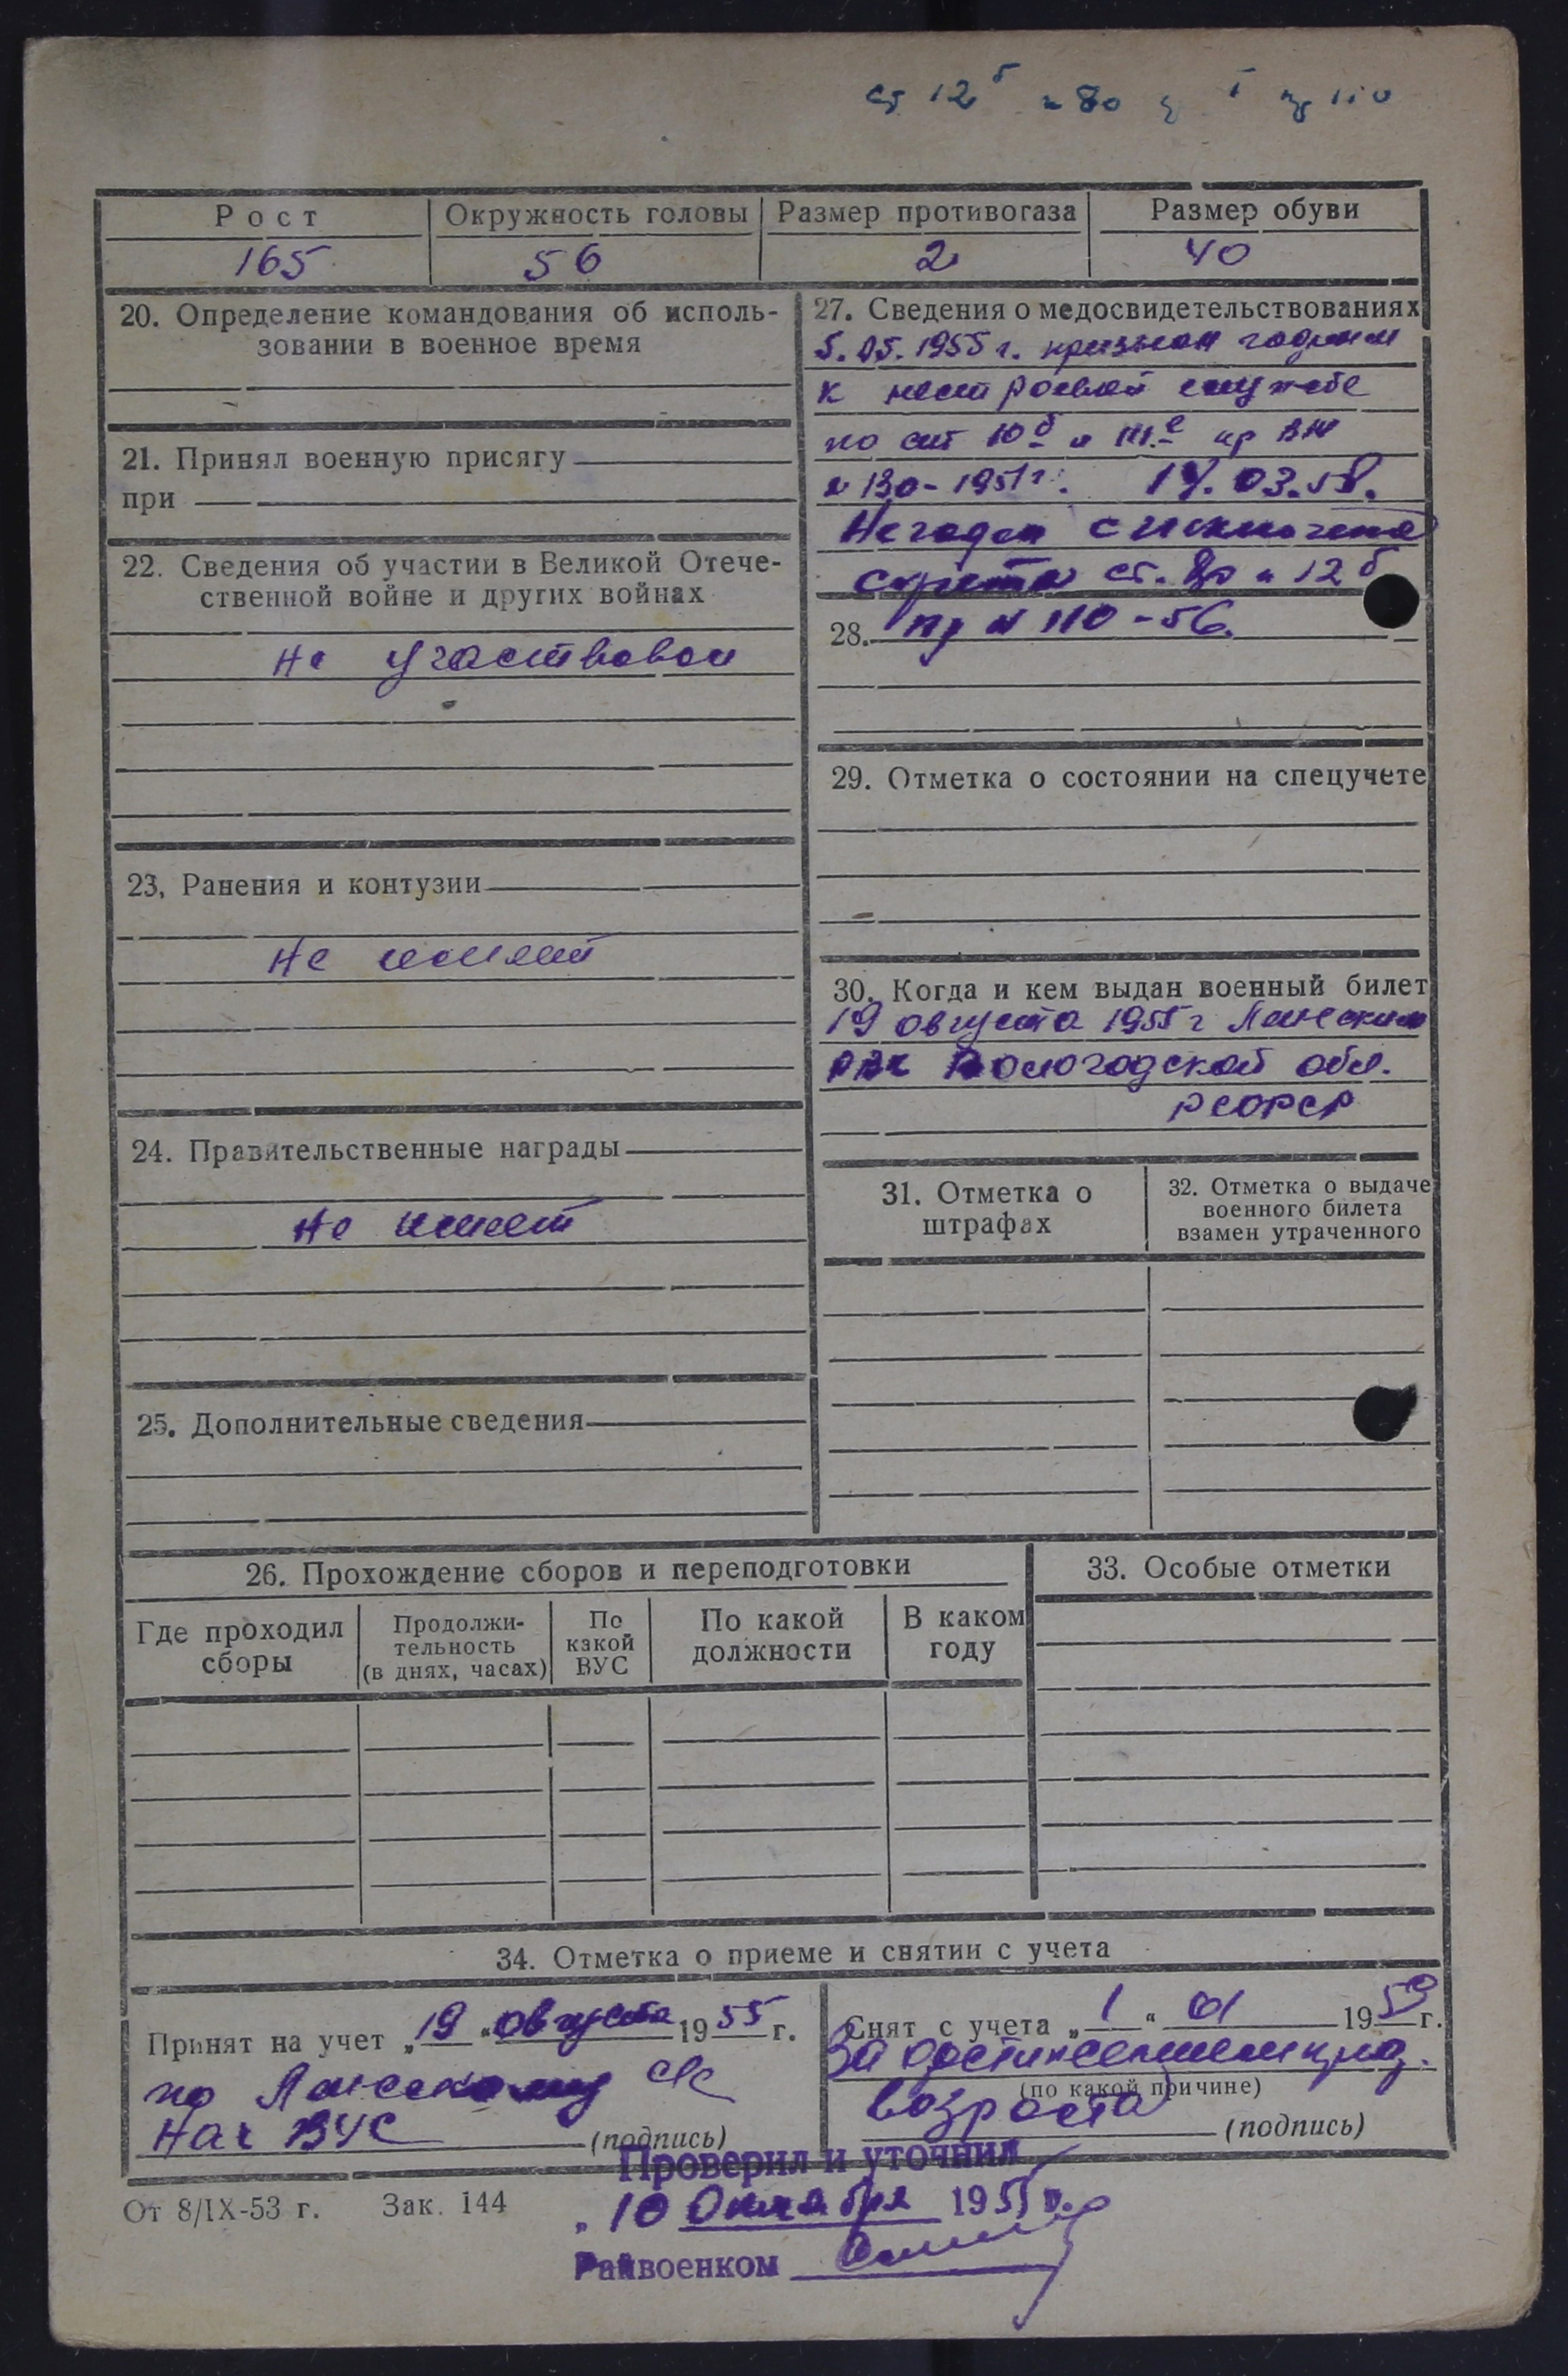 ст 12б и 80 110
Рост Окружность головы Размер противогаза Размер обуви
165 56 2 40
20. Определение командования об исполь-
зовании в военное время
21. Принял военную присягу
при
22. Сведения об участии в Великой Отече-
ственной войне и других войнах
не участвовал
23. Ранения и контузии
не имеет
24. Правительственные награды
не имеет
25. Дополнительные сведения
27. Сведения о медосвидетельствованиях
5.05.1955 г. признан годным
к нестроевой службе
по ст 10б и III.е пр ВМ
№ 130-1951 г. 14.03.58.
Негоден с исключением
с учета ст. 80 и 12б
28. пр № 110-56.
29. Отметка о состоянии на спецучете
30. Когда и кем выдан военный билет
19 августа 1955 г
РВК Вологодской обл.
РСФСР
31. Отметка о
штрафах
32. Отметка о выдаче
военного билета
взамен утраченного
26. Прохождение сборов и переподготовки
Где проходил
сборы
Продолжи-
тельность
(в днях, часах)
По
какой
ВУС
По какой
должности
В каком
году
33. Особые отметки
34. Отметка о приеме и снятии с учета
Принят на учет „19“ августа 1955 г.
по с/с
Нач ВУС (подпись)
Снят с учета „1“ 01 1959 г.
За достижением пред.
(по какой причине)
возраста (подпись)
Проверил и уточнил
„10 октября 1955 г.
От 8/IX-53 г. Зак. 144
Райвоенком